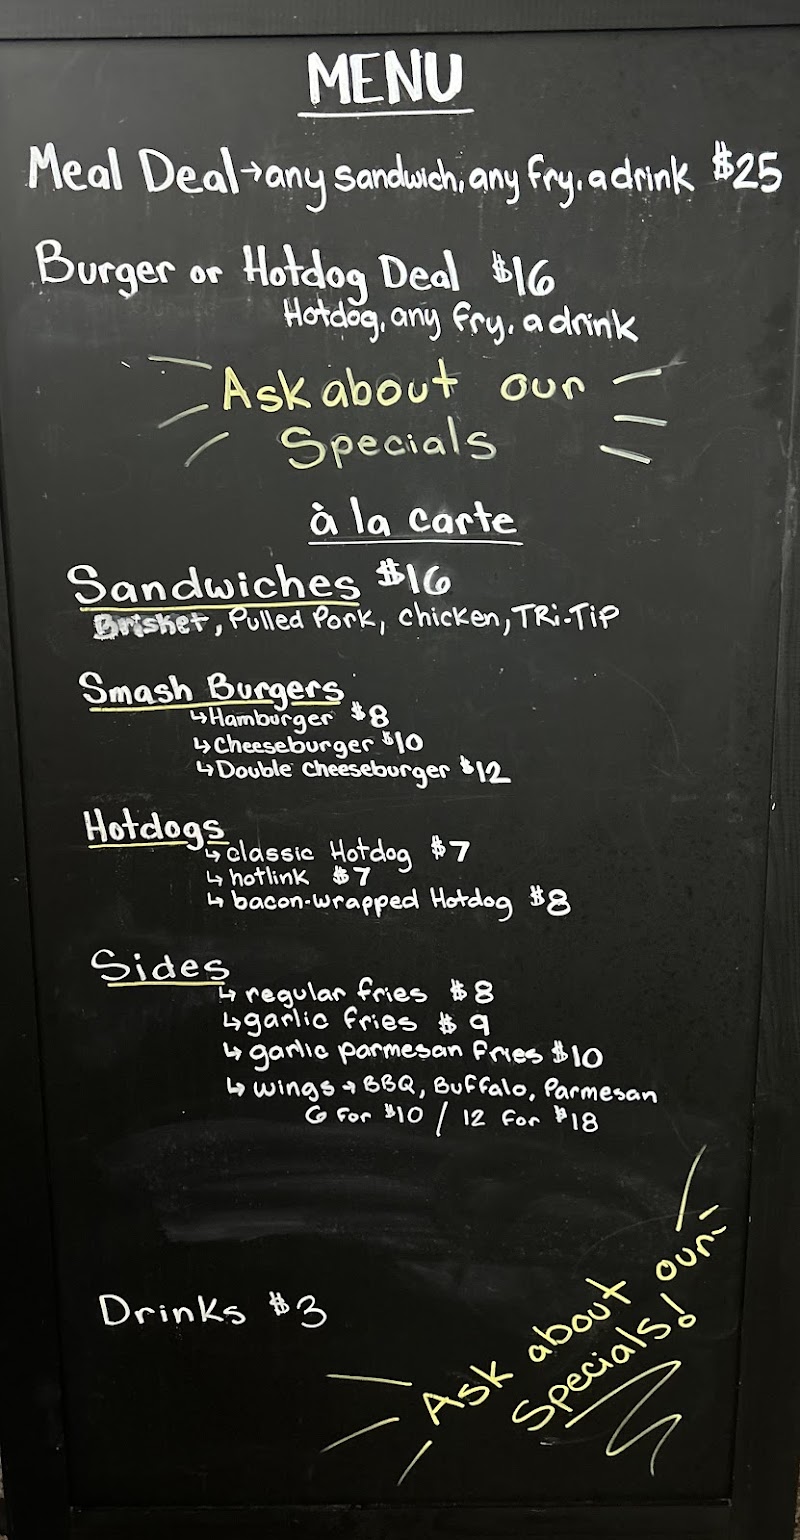 MENU
Meal Deal→any sandwich, any fry, a drink $25
Burger or Hotdog Deal $16
Hotdog, any fry, a drink
Ask about our
Specials
à la carte
Sandwiches $16
Brisket, Pulled Pork, chicken, TRi-TiP
Smash Burgers
↳Hamburger $8
↳Cheeseburger $10
↳Double Cheeseburger $12
Hotdogs
↳classic Hotdog $7
↳hotlink $7
↳bacon-wrapped Hotdog $8
Sides
↳regular fries $8
↳garlic fries $9
↳garlic parmesan fries $10
↳wings→BBQ, Buffalo, Parmesan
6 for $10 / 12 for $18
Drinks $3
Ask about our
Specials!